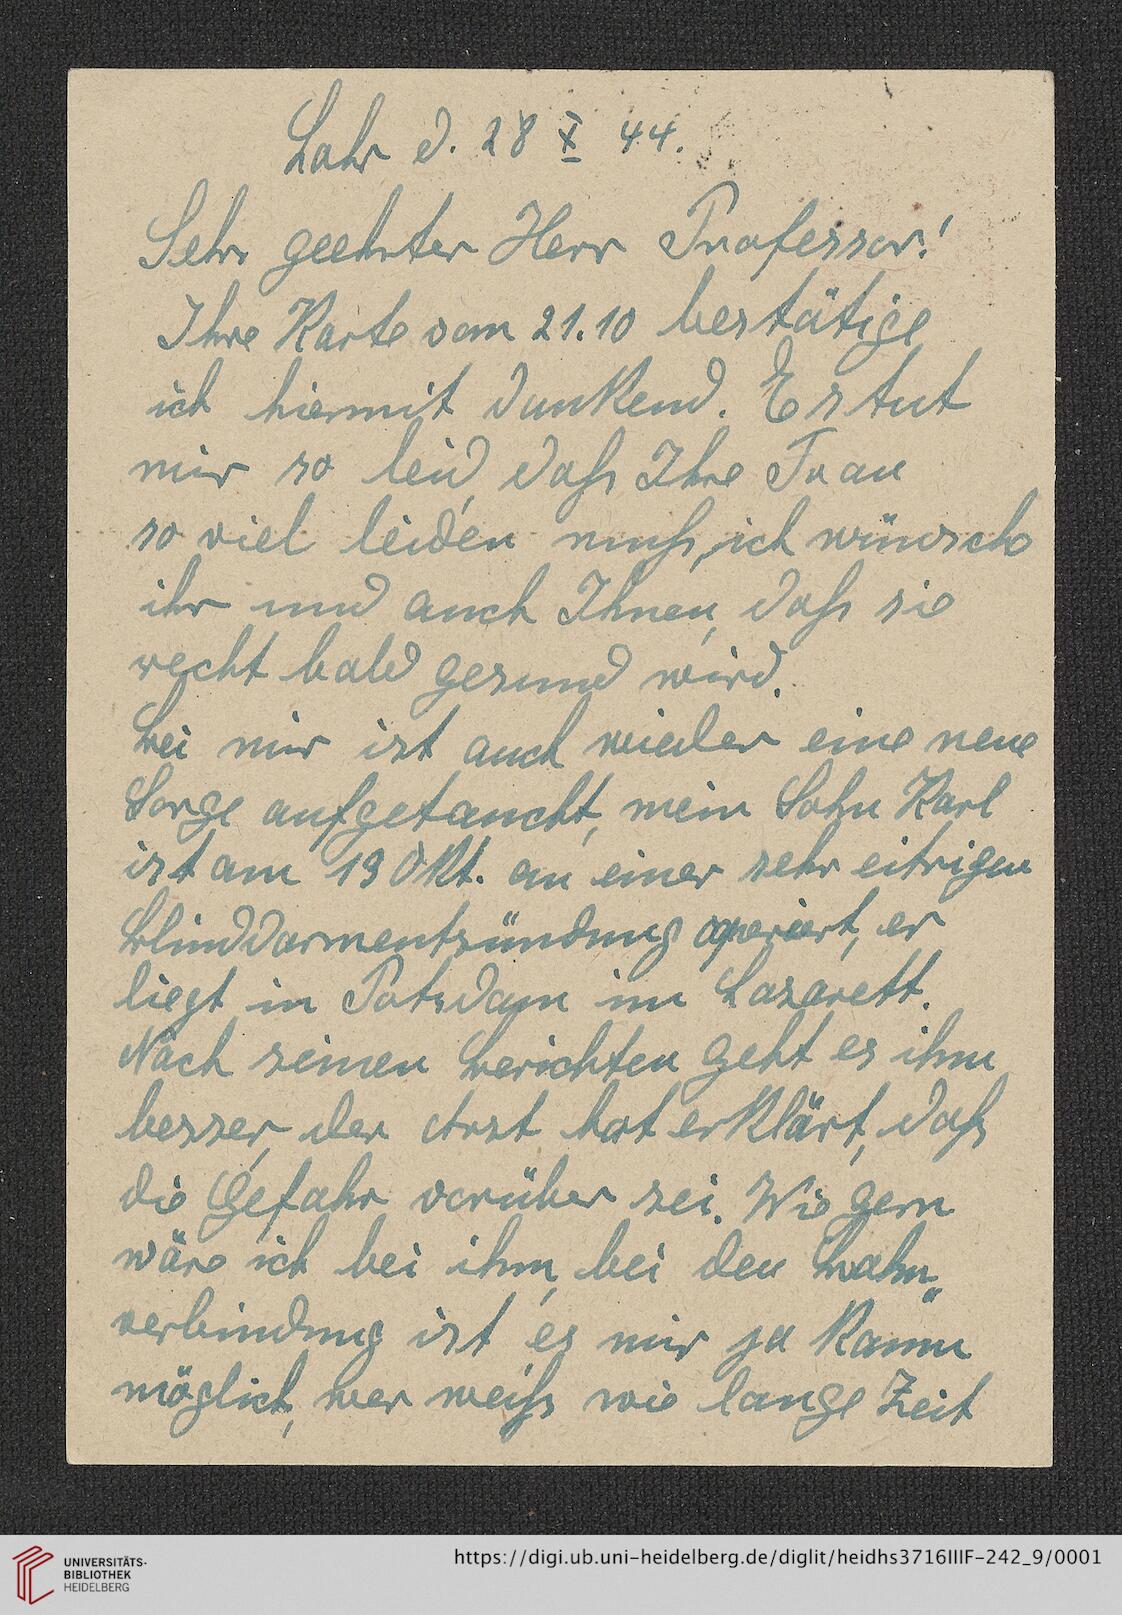 Lahr d. 28 X 44.
Sehr geehrter Herr Professor!
Ihre Karte vom 21.10 bestätige
ich hiermit dankend. Es tut
mir so leid, daß Ihre Frau
so viel leiden muß, ich wünsche
ihr und auch Ihnen, daß sie
recht bald gesund wird.
Bei mir ist auch wieder eine neue
Sorge aufgetaucht, mein Sohn Karl
ist am 19 Okt. an einer sehr eitrigen
Blinddarmentsündung operiert, er
liegt in Potsdam im Lazarett.
Nach seinen Berichten geht es ihm
besser, der Arzt hat erklärt, daß
die Gefahr vorüber sei. Wie gern
wäre ich bei ihm, bei den Bahn„
verbindung ist es mir ja kaum
möglich, wer weiß wie lange Zeit
UNIVERSITÄTS-
BIBLIOTHEK
HEIDELBERG
https://digi.ub.uni-heidelberg.de/diglit/heidhs3716IIIF-242_9/0001